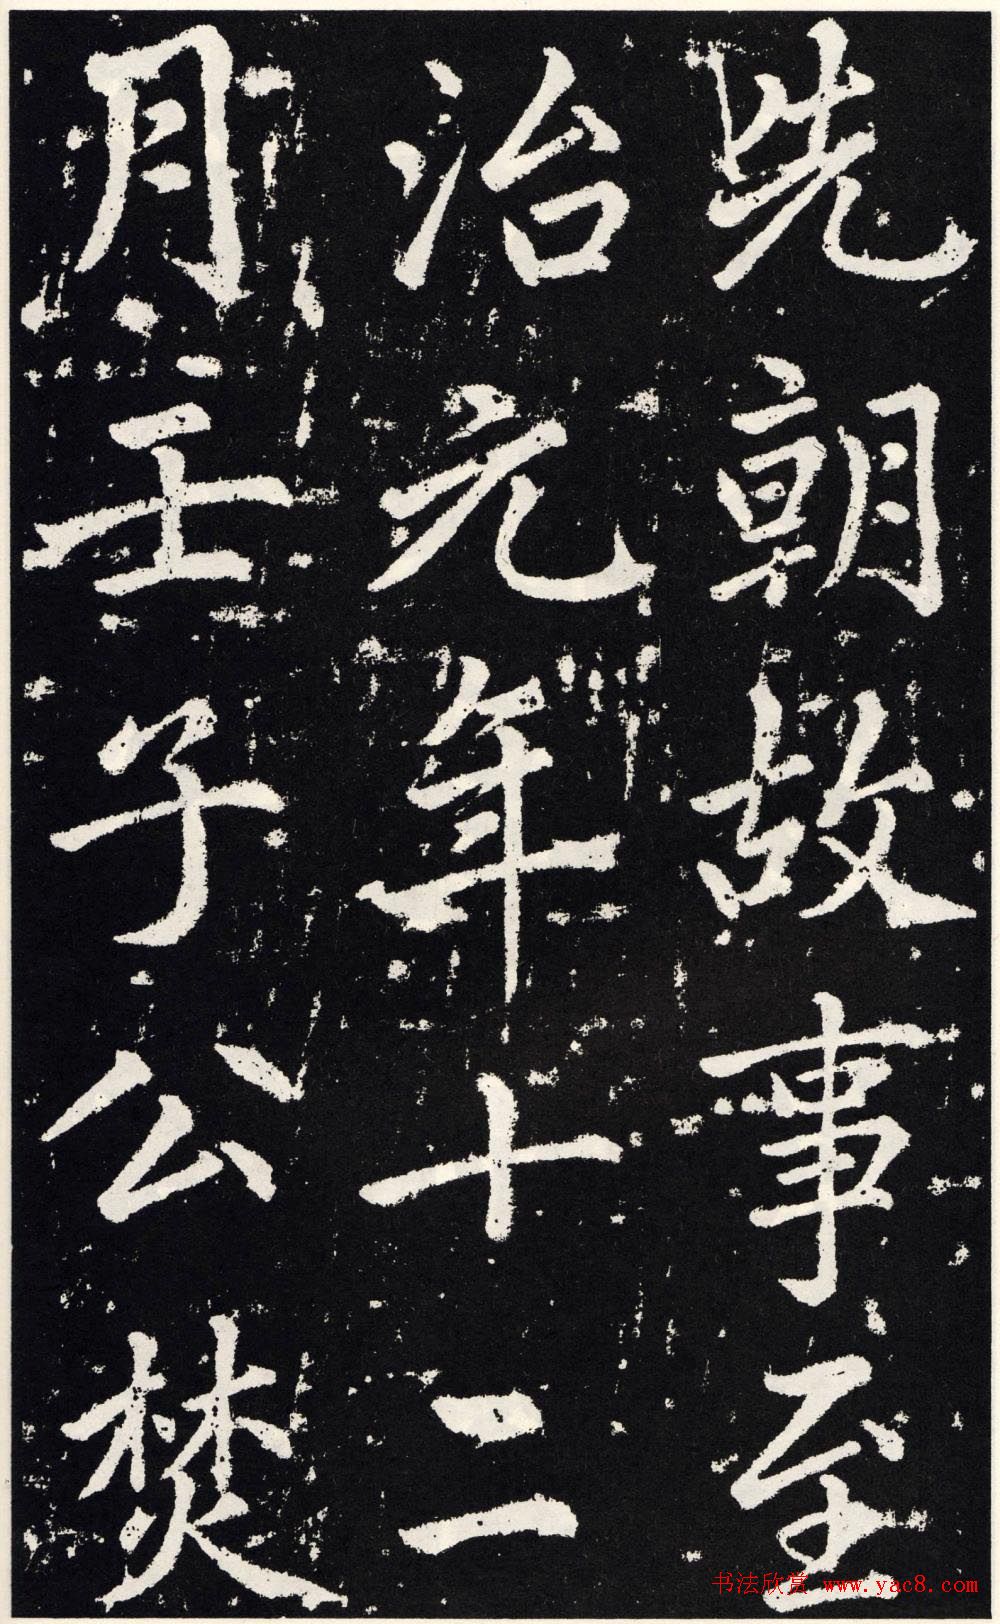 先朝故事至
治元年十二
月壬子公焚
书法欣赏 www.yac8.com